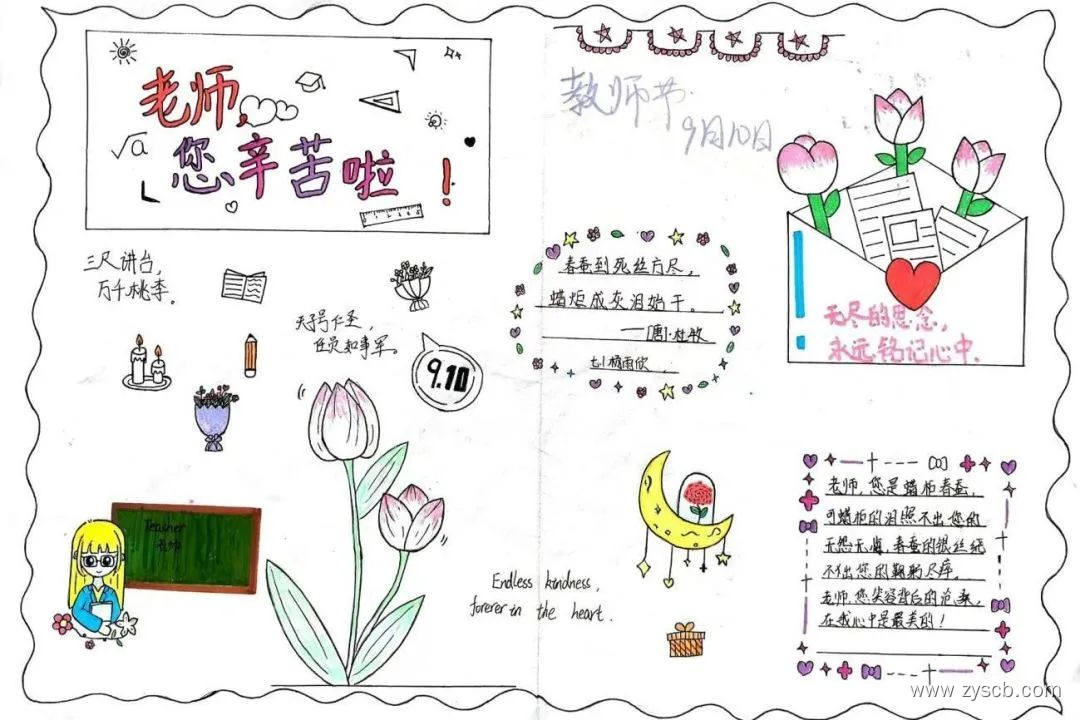 老师,
您辛苦啦!
√a
三尺讲台,
万千桃李。
天子号仁圣,
任贤如事军。
9.10
Teacher
老师
Endless kindness,
forever in the heart.
教师节
9月10日
春蚕到死丝方尽,
蜡炬成灰泪始干。
——[唐]·杜牧
无尽的思念,
永远铭记心中.
老师,您是蜡炬春蚕,
可蜡炬的泪照不出您的
无怨无悔,春蚕的银丝绕
不住您的鞠躬尽瘁。
老师,您笑容背后的沧桑,
在我心中是最美的!
www.zyscb.com